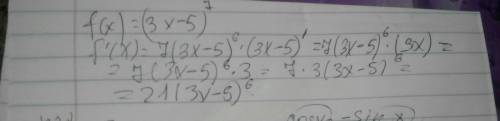 f(x)=(3x-5)⁷
f'(x)=7(3x-5)⁶·(3x-5)'=7(3x-5)⁶·(3x)=
=7(3x-5)⁶·3=7·3(3x-5)⁶=
=21(3x-5)⁶
-sin x)